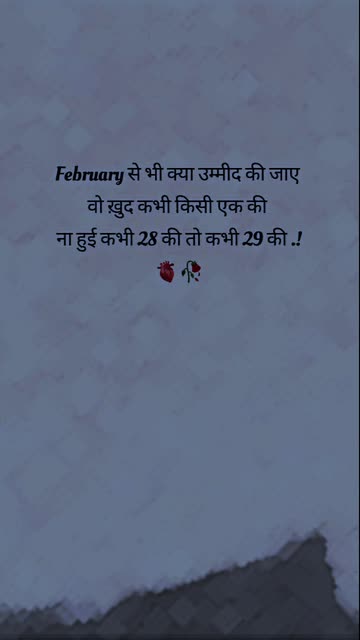 February से भी क्या उम्मीद की जाए
वो ख़ुद कभी किसी एक की
ना हुई कभी 28 की तो कभी 29 की .!
🫀🥀